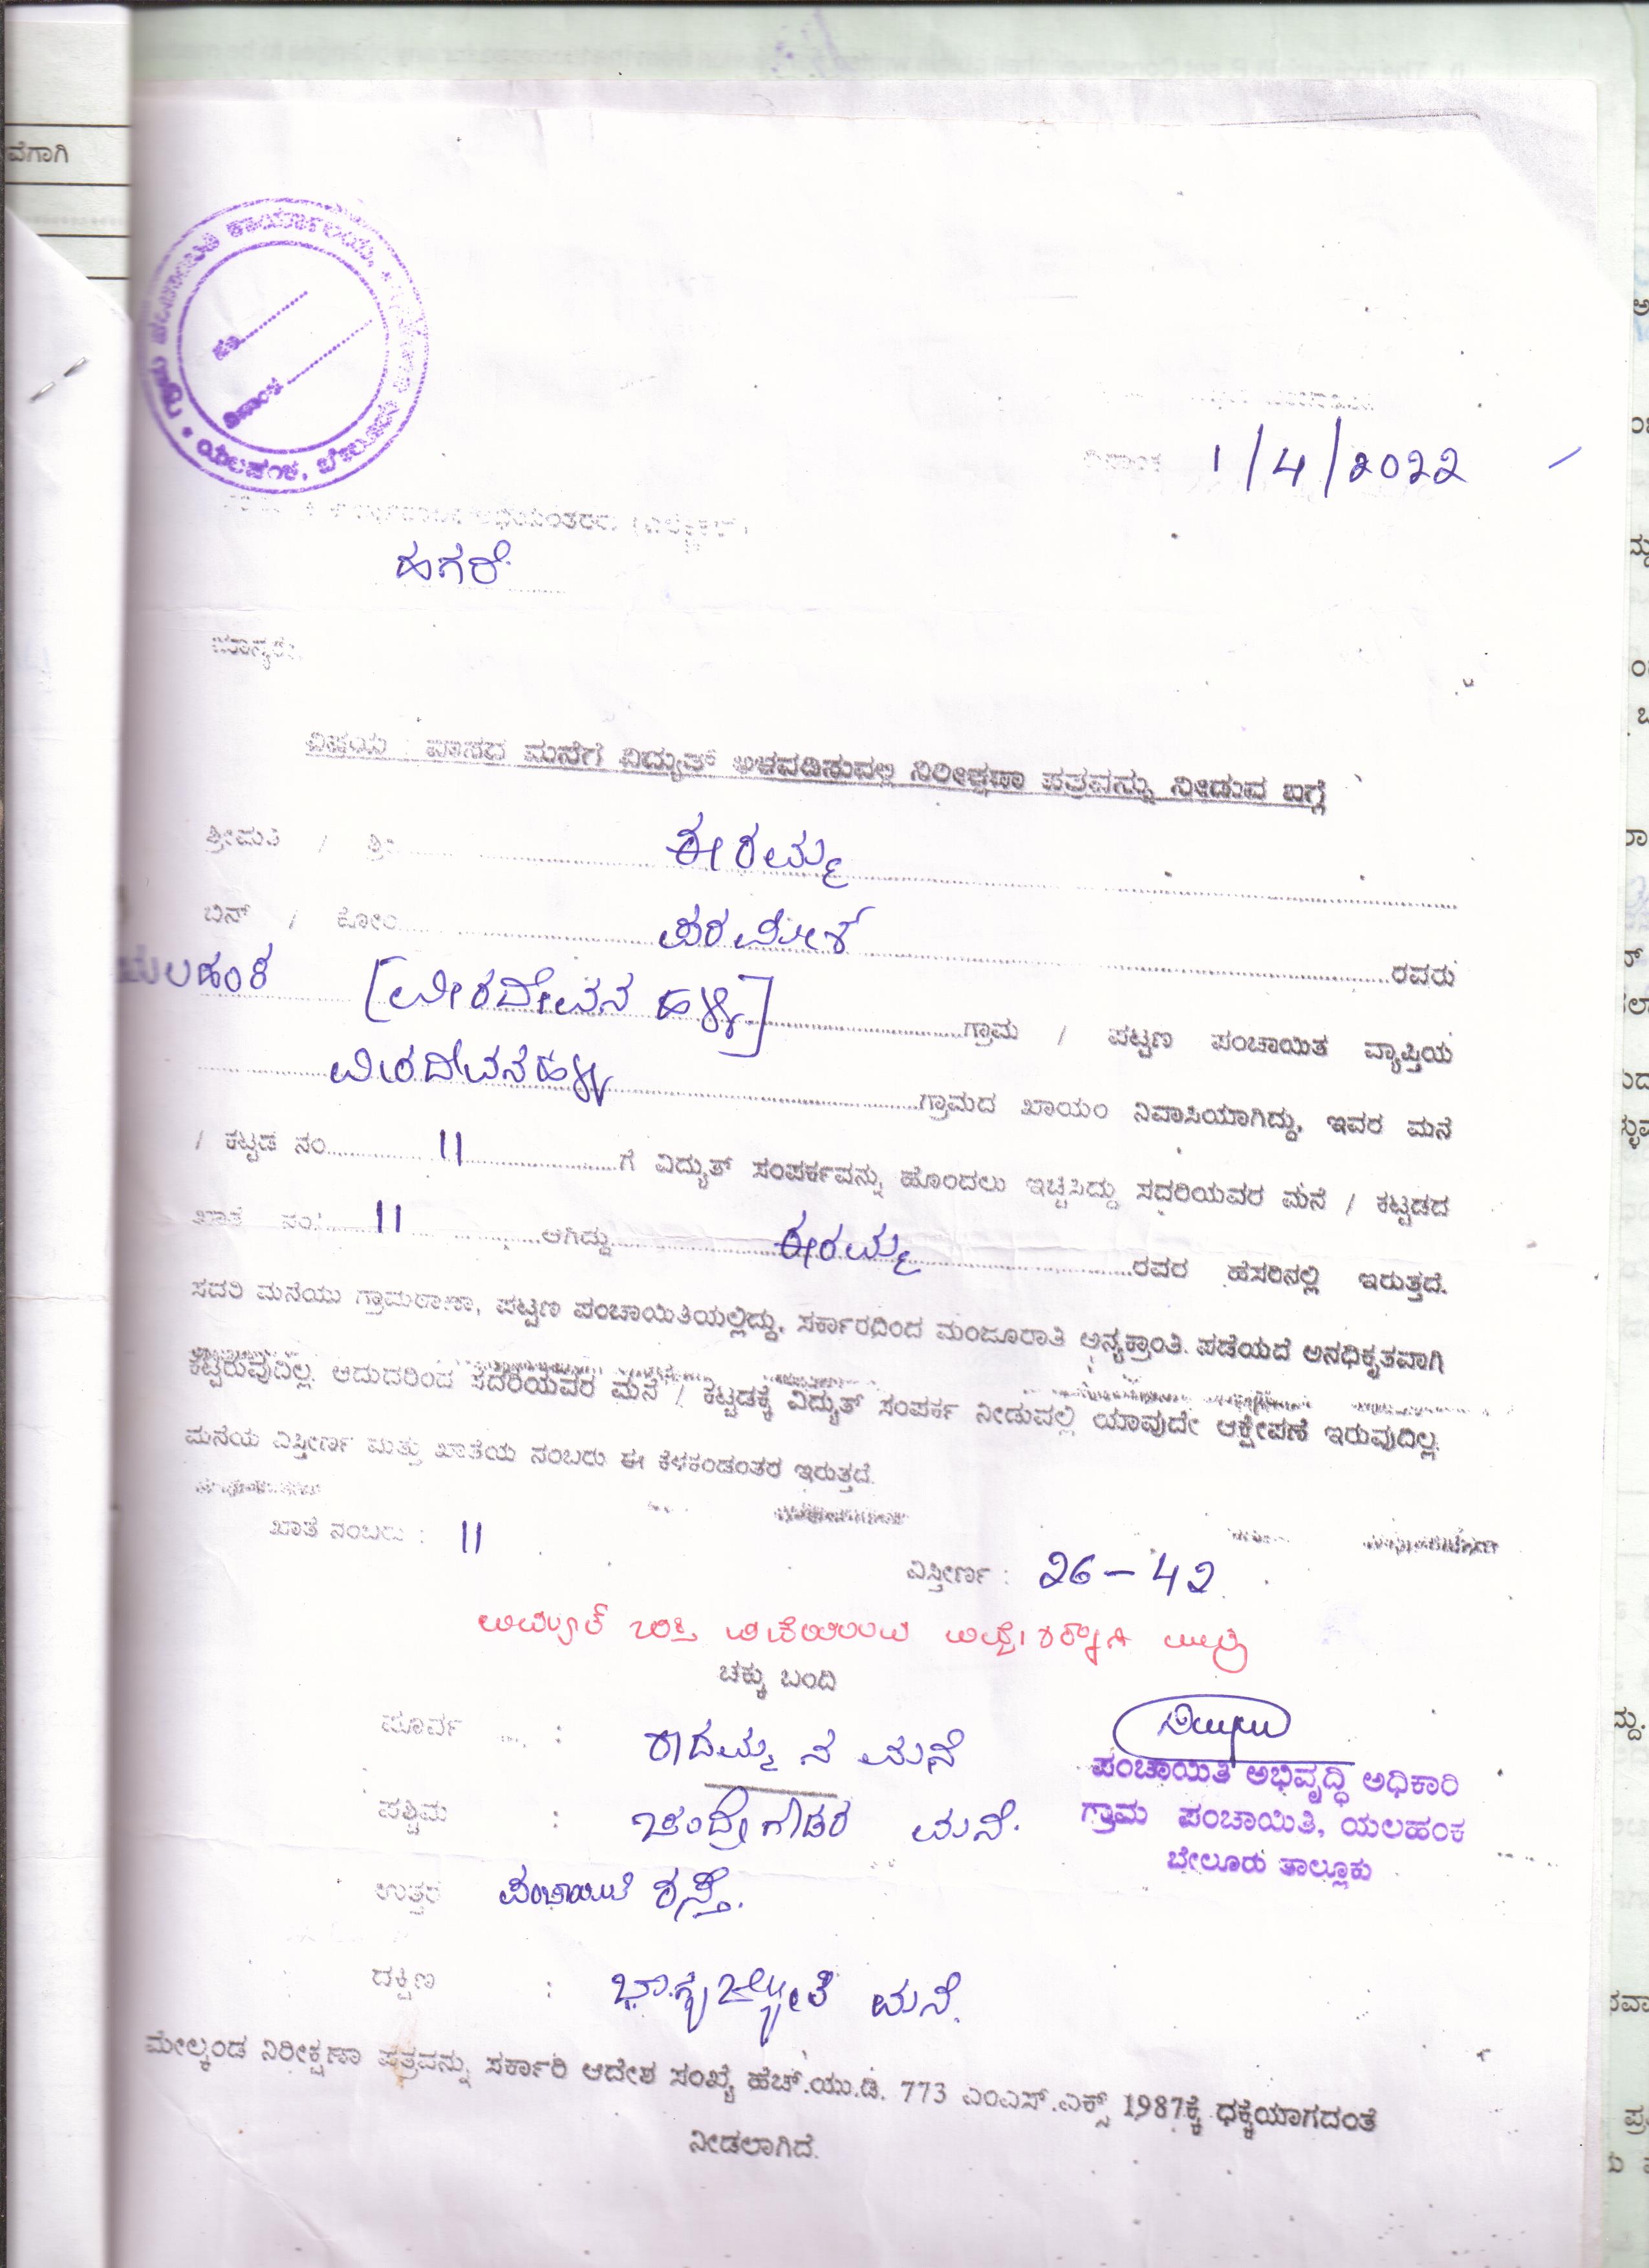 ವೆಗಾಗಿ
ಗ್ರಾಮ ಪಂಚಾಯಿತಿ ಕಾರ್ಯಾಲಯ,
ಯಲಹಂಕ, ಬೇಲೂರು
ದಿನಾಂಕ
ದಿನಾಂಕ 1/4/2022
ಹಗರೆ
ಮಾನ್ಯರೇ,
ವಿಷಯ : ವಾಸದ ಮನೆಗೆ ವಿದ್ಯುತ್ ಅಳವಡಿಸುವಲ್ಲಿ ನಿರೀಕ್ಷಣಾ ಪತ್ರವನ್ನು ನೀಡುವ ಬಗ್ಗೆ
ಶ್ರೀಮತಿ / ಶ್ರೀ ಈರಮ್ಮ
ಬಿನ್ / ಕೋಂ ಪರಮೇಶ ರವರು
ಯಲಹಂಕ [ವೀರದೇವನ ಹಳ್ಳಿ] ಗ್ರಾಮ / ಪಟ್ಟಣ ಪಂಚಾಯಿತ ವ್ಯಾಪ್ತಿಯ
ವೀರದೇವನಹಳ್ಳಿ ಗ್ರಾಮದ ಖಾಯಂ ನಿವಾಸಿಯಾಗಿದ್ದು, ಇವರ ಮನೆ
/ ಕಟ್ಟಡ ನಂ 11 ಗೆ ವಿದ್ಯುತ್ ಸಂಪರ್ಕವನ್ನು ಹೊಂದಲು ಇಚ್ಚಿಸಿದ್ದು ಸದರಿಯವರ ಮನೆ / ಕಟ್ಟಡದ
ಖಾತೆ ನಂ. 11 ಆಗಿದ್ದು ಈರಮ್ಮ ರವರ ಹೆಸರಿನಲ್ಲಿ ಇರುತ್ತದೆ.
ಸದರಿ ಮನೆಯು ಗ್ರಾಮಠಾಣಾ, ಪಟ್ಟಣ ಪಂಚಾಯಿತಿಯಲ್ಲಿದ್ದು, ಸರ್ಕಾರದಿಂದ ಮಂಜೂರಾತಿ ಅನ್ಯಕ್ರಾಂತಿ. ಪಡೆಯದೆ ಅನಧಿಕೃತವಾಗಿ
ಕಟ್ಟಿರುವುದಿಲ್ಲ. ಆದುದರಿಂದ ಸದರಿಯವರ ಮನೆ / ಕಟ್ಟಡಕ್ಕೆ ವಿದ್ಯುತ್ ಸಂಪರ್ಕ ನೀಡುವಲ್ಲಿ ಯಾವುದೇ ಆಕ್ಷೇಪಣೆ ಇರುವುದಿಲ್ಲ.
ಮನೆಯ ವಿಸ್ತೀರ್ಣ ಮತ್ತು ಖಾತೆಯ ನಂಬರು ಈ ಕೆಳಕಂಡಂತರ ಇರುತ್ತದೆ.
ಖಾತೆ ನಂಬರು : 11
ವಿಸ್ತೀರ್ಣ : 26-42
ಚಕ್ಕು ಬಂದಿ
ಪೂರ್ವ : ಕಾದಮ್ಮ ನ ಮನೆ
ಪಶ್ಚಿಮ : ಚಂದ್ರೇಗೌಡರ ಮನೆ.
ಪಂಚಾಯಿತಿ ಅಭಿವೃದ್ಧಿ ಅಧಿಕಾರಿ
ಗ್ರಾಮ ಪಂಚಾಯಿತಿ, ಯಲಹಂಕ
ಬೇಲೂರು ತಾಲ್ಲೂಕು
ಉತ್ತರ ಪಂಚಾಯಿತಿ ರಸ್ತೆ.
ದಕ್ಷಿಣ : ಭಾಗ್ಯಜ್ಯೋತಿ ಮನೆ.
ಮೇಲ್ಕಂಡ ನಿರೀಕ್ಷಣಾ ಪತ್ರವನ್ನು ಸರ್ಕಾರಿ ಆದೇಶ ಸಂಖ್ಯೆ ಹೆಚ್.ಯು.ಡಿ. 773 ಎಂಎಸ್.ಎಕ್ಸ್ 1987ಕ್ಕೆ ಧಕ್ಕೆಯಾಗದಂತೆ
ನೀಡಲಾಗಿದೆ.